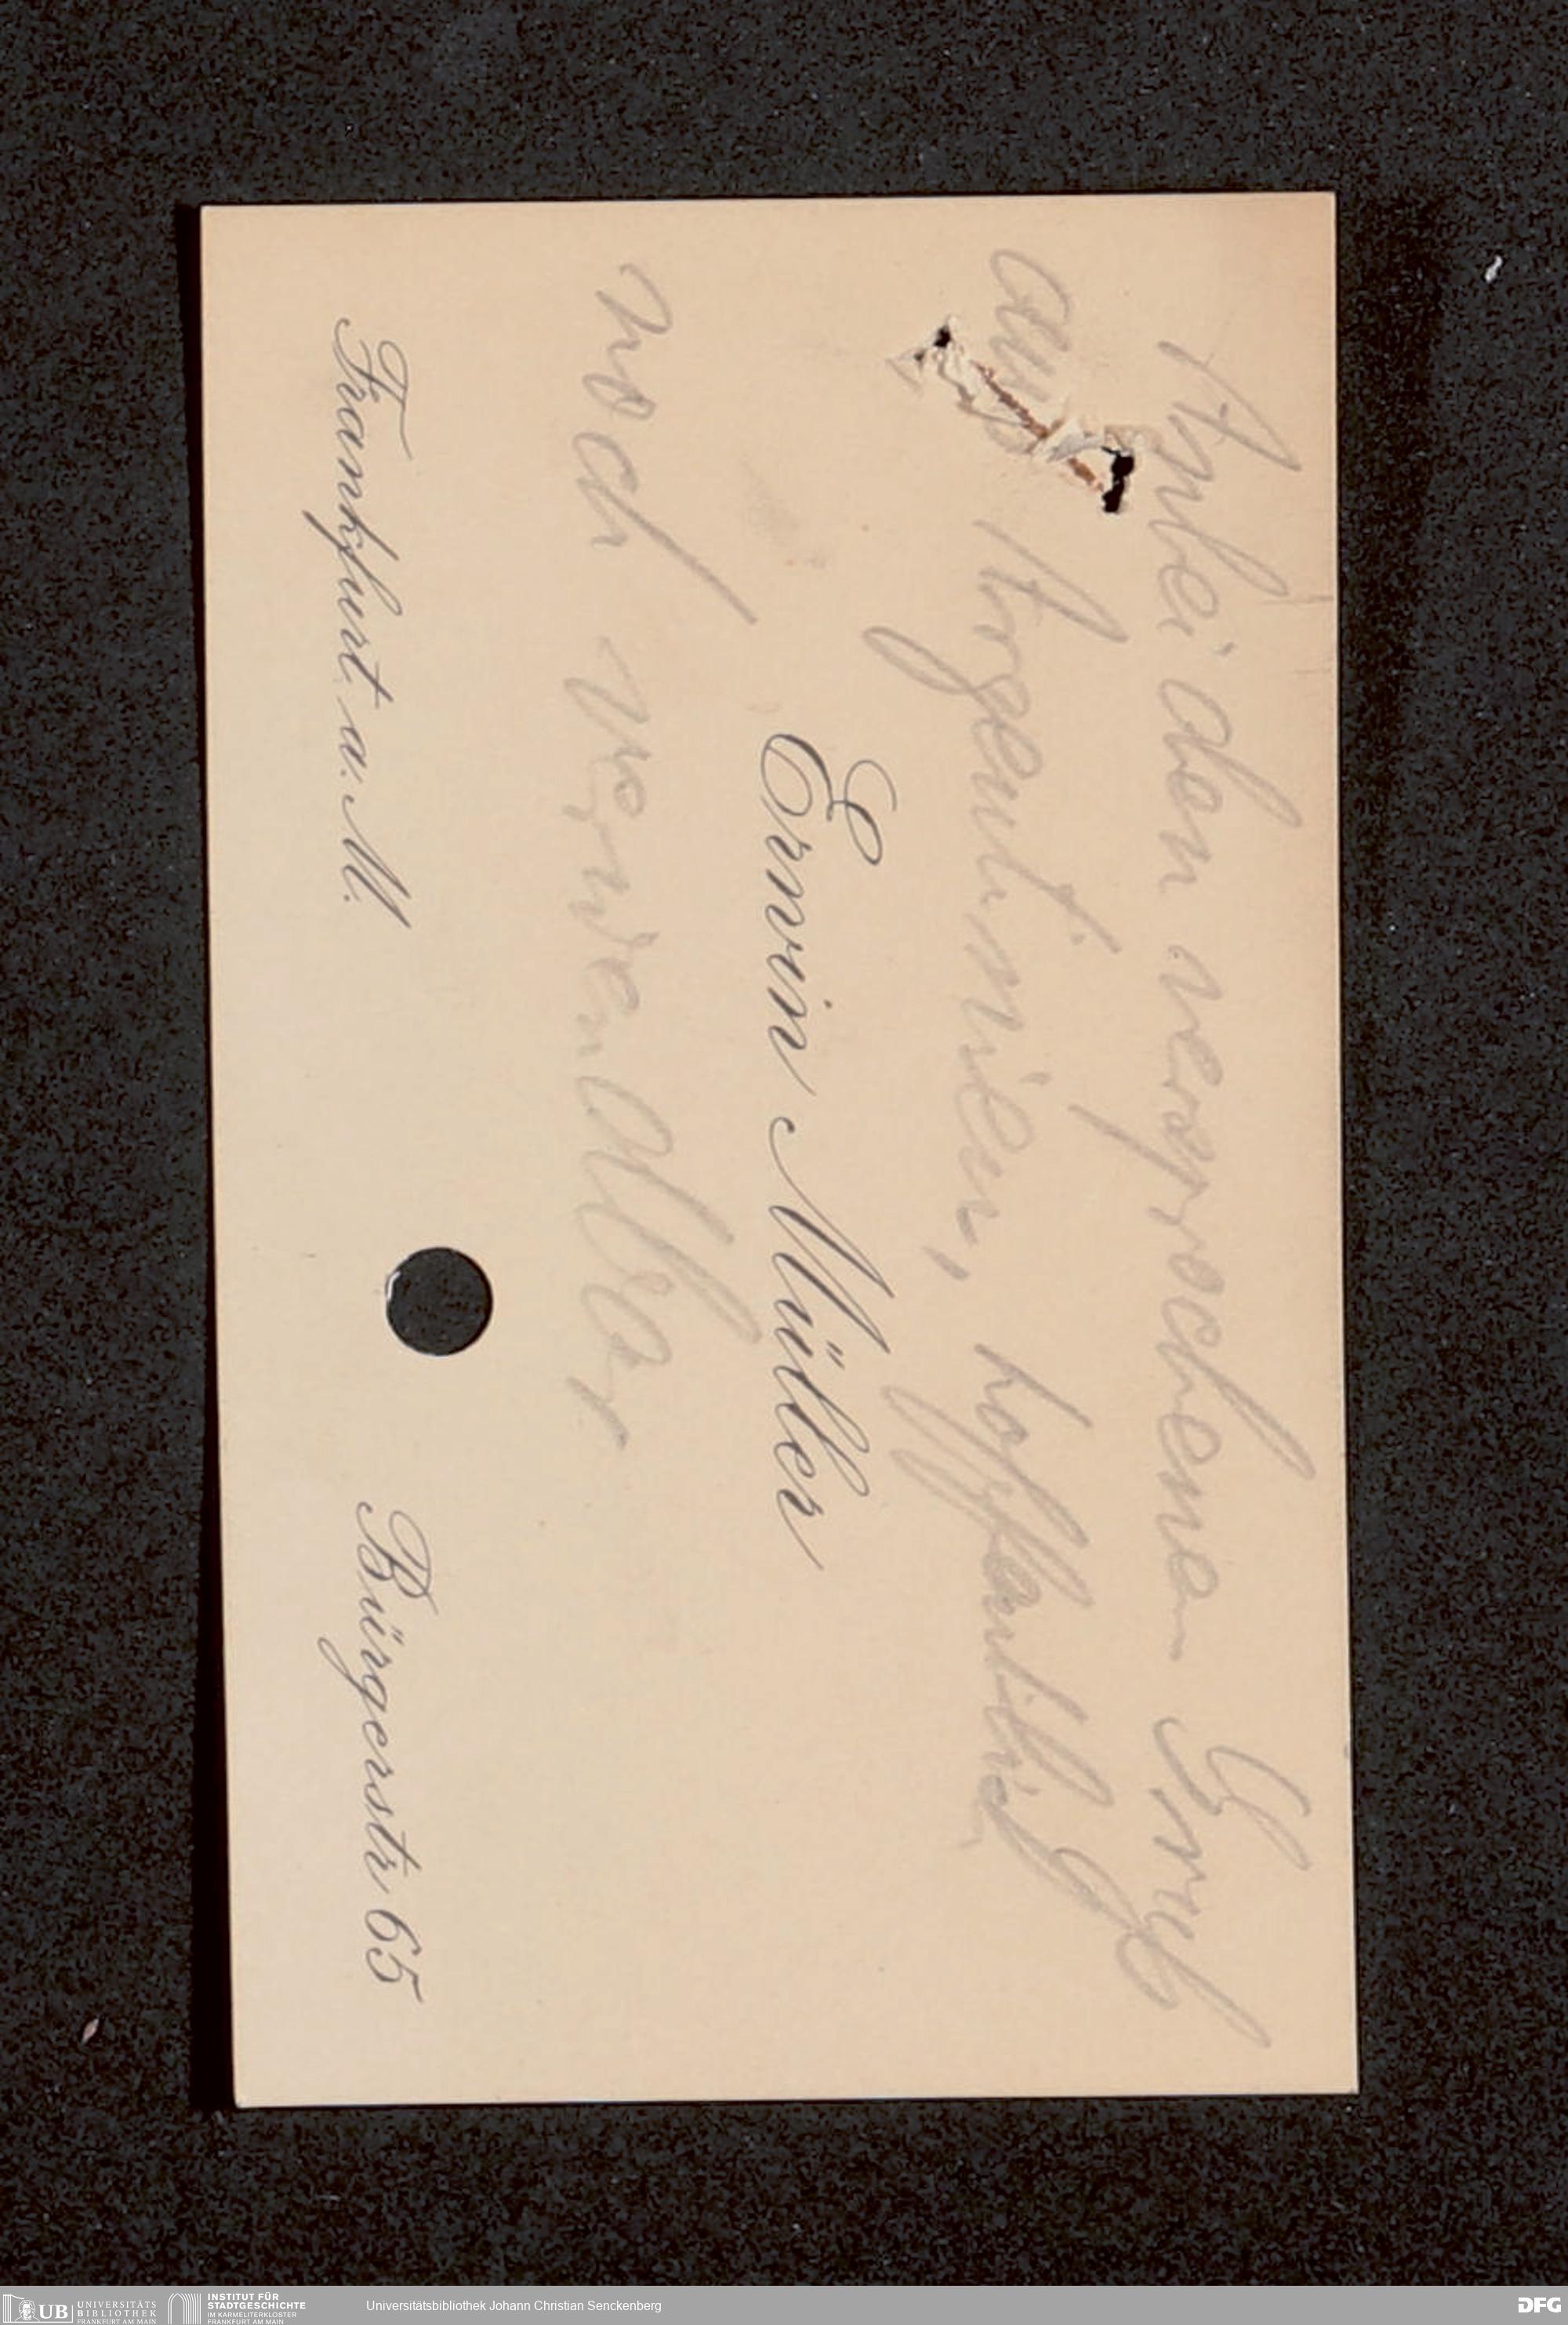 Anbei den versprochenen Gruß
aus Argentinien, hoffentlich
Erwin Müller
noch verwendbar
Frankfurt a. M. Bürgerstr. 65
UB UNIVERSITÄTS
BIBLIOTHEK
FRANKFURT AM MAIN
INSTITUT FÜR
STADTGESCHICHTE
IM KARMELITERKLOSTER
FRANKFURT AM MAIN
Universitätsbibliothek Johann Christian Senckenberg
DFG